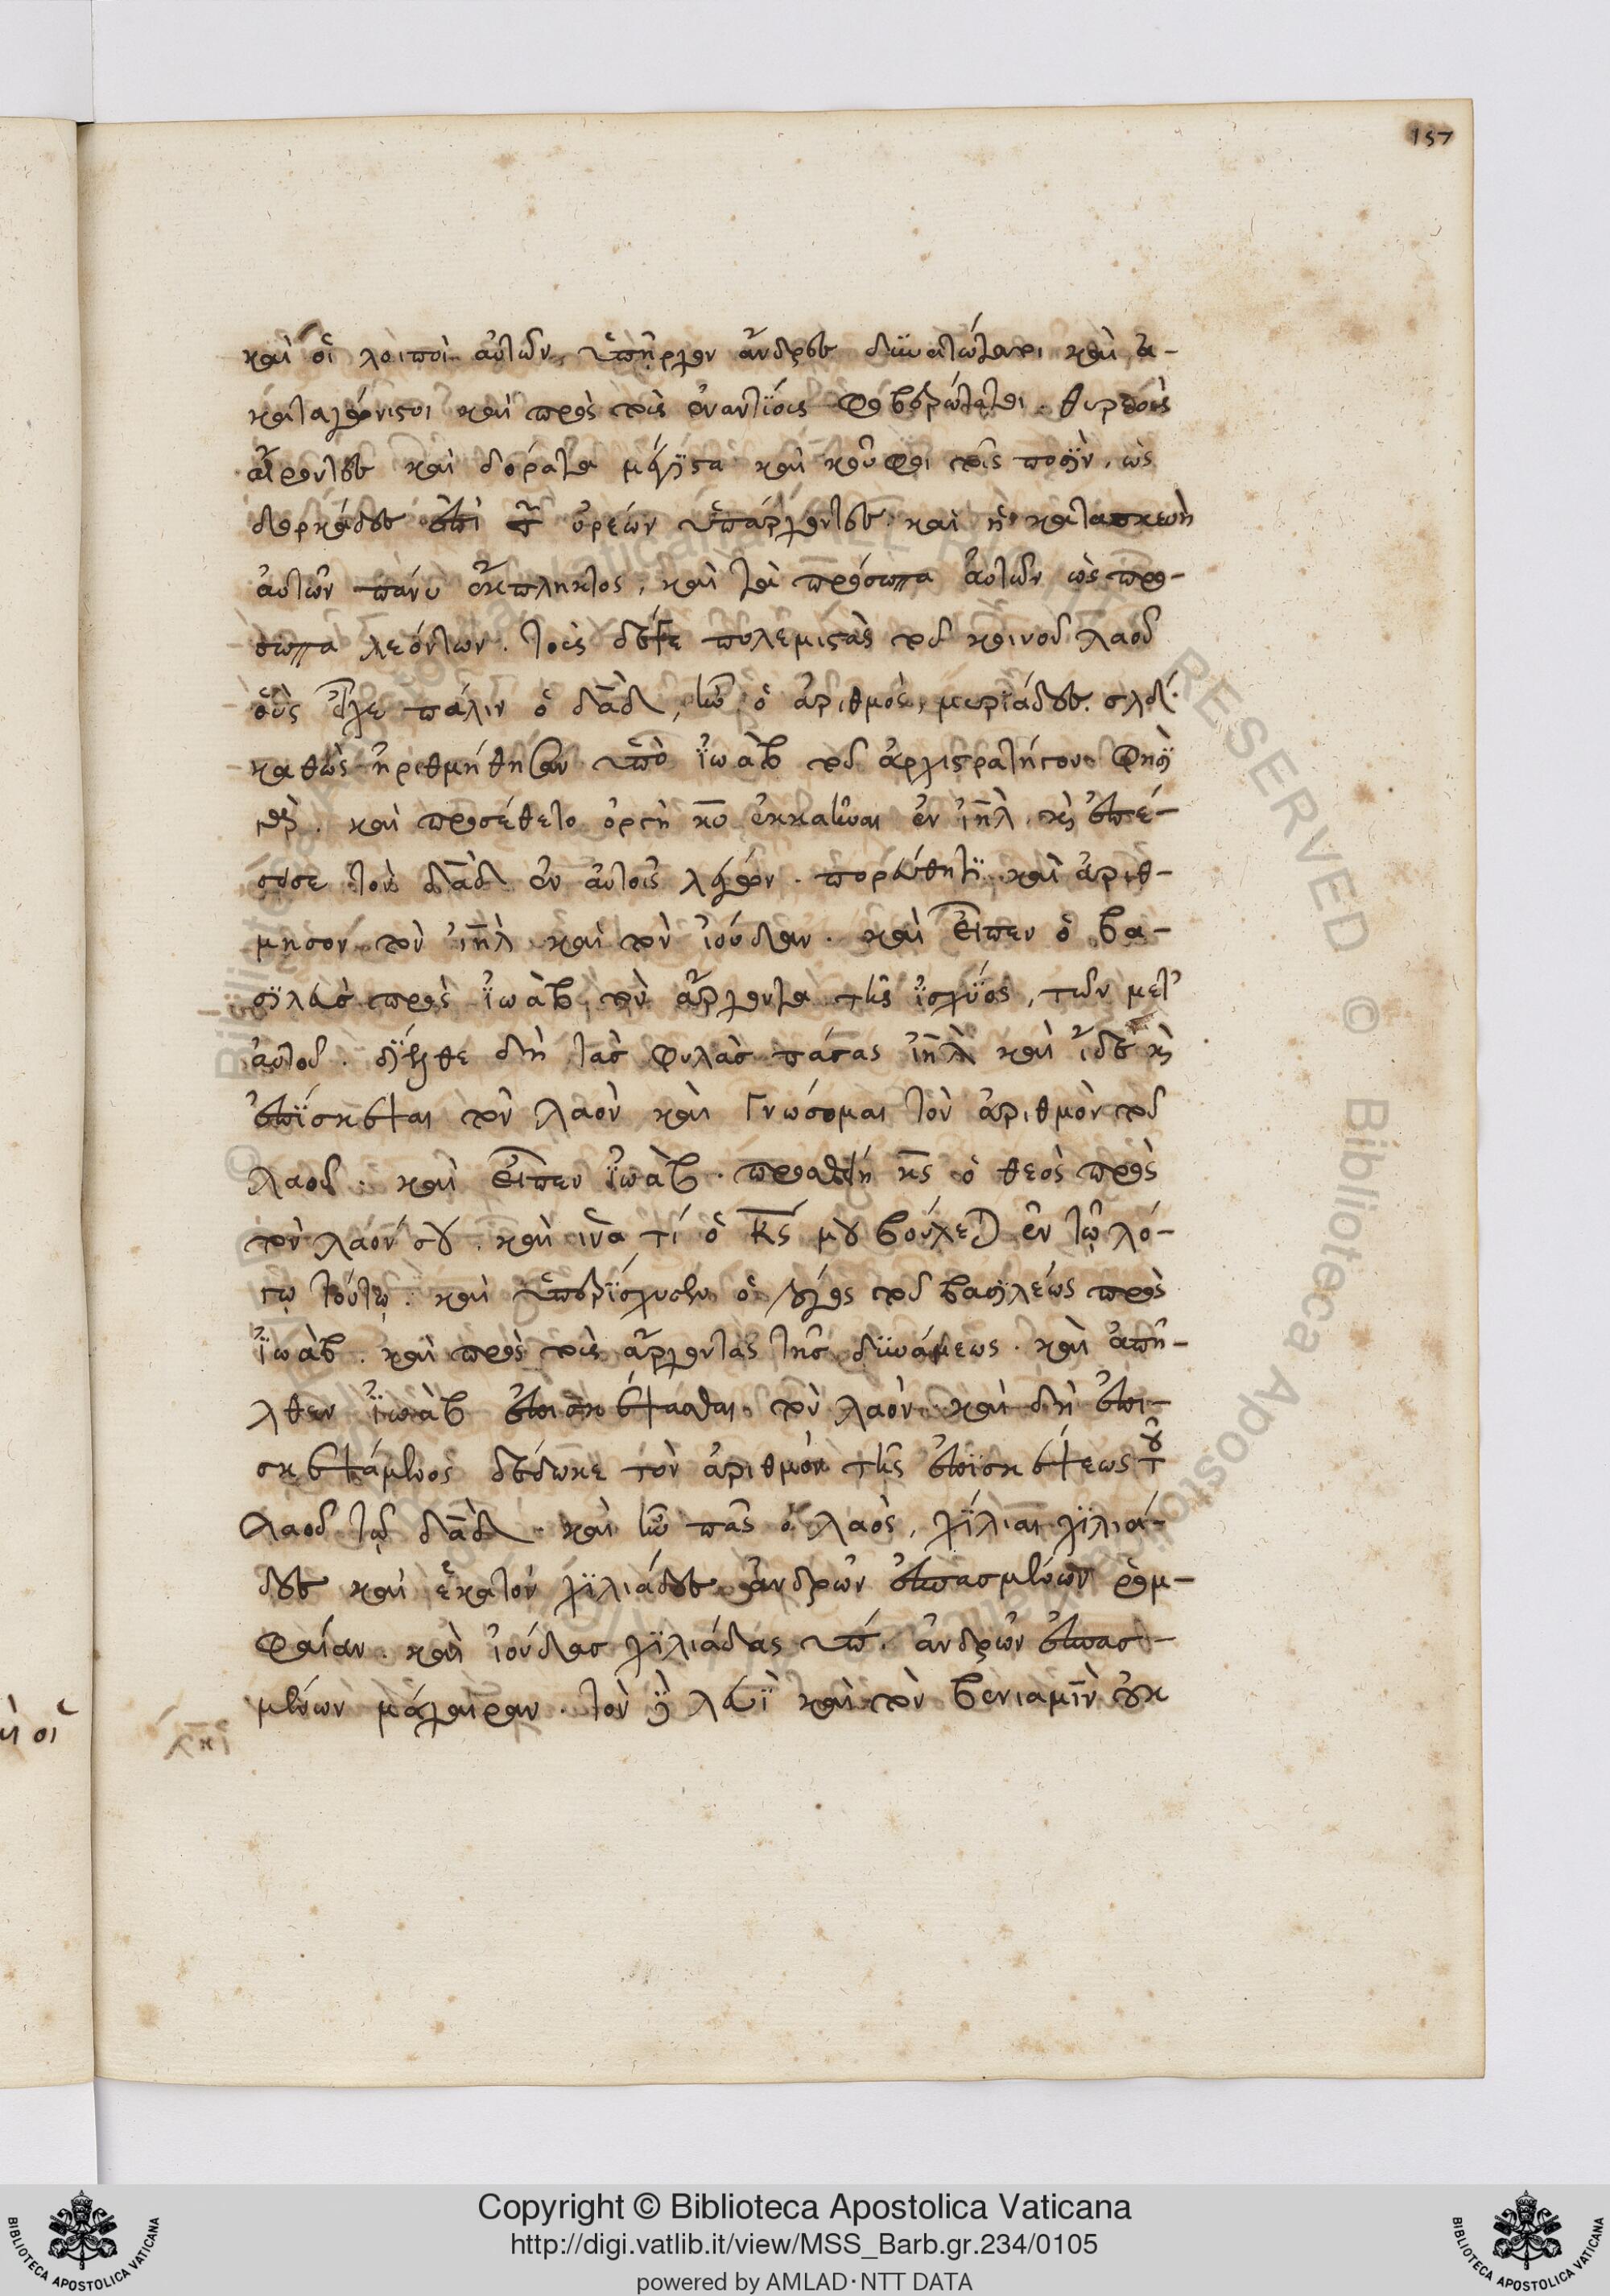 157
καὶ οἱ λοιποὶ αὐτῶν, ὑπῆρχον ἄνδρες δυνατώτατοι καὶ ἀ-
καταγώνιστοι καὶ πρὸς τοὺς ἐναντίους φοβερώτατοι. θυρεοὺς
αἴροντες καὶ δόρατα μάλιστα καὶ κοῦφοι τοῖς ποσὶν, ὡς
δορκάδες ἐπὶ τῶν ὀρέων ὑπάρχοντες. καὶ ἡ κατασκευὴ
αὐτῶν πάνυ ἔκπληκτος, καὶ τὰ πρόσωπα αὐτῶν ὡς πρό-
σωπα λεόντων. τοὺς δέ γε πολεμιστὰς τοῦ κοινοῦ λαοῦ
οὓς εἶχε πάλιν ὁ δᾱδ, ἦν ὁ ἀριθμὸς, μυριάδες. σλδ.
καθὼς ἠριθμήθησαν ὑπὸ ἰωὰβ τοῦ ἀρχιστρατήγου. φησὶ
γάρ. καὶ προσέθετο ὀργὴ κ̅υ̅ ἐκκαῆναι ἐν ἰη̅λ. καὶ ἐπέ-
σεισε τὸν δᾱδ ἐν αὐτοῖς λέγων. πορεύθητι καὶ ἀρίθ-
μησον τὸν ἰη̅λ καὶ τὸν ἰούδαν. καὶ εἶπεν ὁ βα-
σιλεὺς πρὸς ἰωὰβ τὸν ἄρχοντα τῆς ἰσχύος, τῶν μετ'
αὐτοῦ. δίελθε δὴ τὰς φυλὰς πάσας ἰη̅λ καὶ ἴδε καὶ
ἐπίσκεψαι τὸν λαὸν καὶ γνώσομαι τὸν ἀριθμὸν τοῦ
λαοῦ. καὶ εἶπεν ἰωὰβ. προσθείη κ̅ς̅ ὁ θεὸς πρὸς
τὸν λαόν σου. καὶ ἵνα τί ὁ κ̅ς̅ μου βούλεται ἐν τῷ λό-
γῳ τούτῳ. καὶ ὑπερίσχυσεν ὁ λόγος τοῦ βασιλέως πρὸς
ἰωὰβ. καὶ πρὸς τοὺς ἄρχοντας τῆς δυνάμεως. καὶ ἀπῆ-
λθεν ἰωὰβ ἐπισκέψασθαι τὸν λαὸν. καὶ δὴ ἐπι-
σκεψάμενος δέδωκε τὸν ἀριθμὸν τῆς ἐπισκέψεως τοῦ
λαοῦ τῷ δᾱδ. καὶ ἦν πᾶς ὁ λαὸς, χίλιαι χιλιά-
δες καὶ ἑκατὸν χιλιάδες ἀνδρῶν ἐσπασμένων ῥομ-
φαίαν. καὶ ἰούδας χιλιάδας υπ. ἀνδρῶν ἐσπασ-
μένων μάχαιραν. τὸν δὲ λευῒ καὶ τὸν βενιαμὶν οὐκ
Copyright © Biblioteca Apostolica Vaticana
http://digi.vatlib.it/view/MSS_Barb.gr.234/0105
powered by AMLAD·NTT DATA